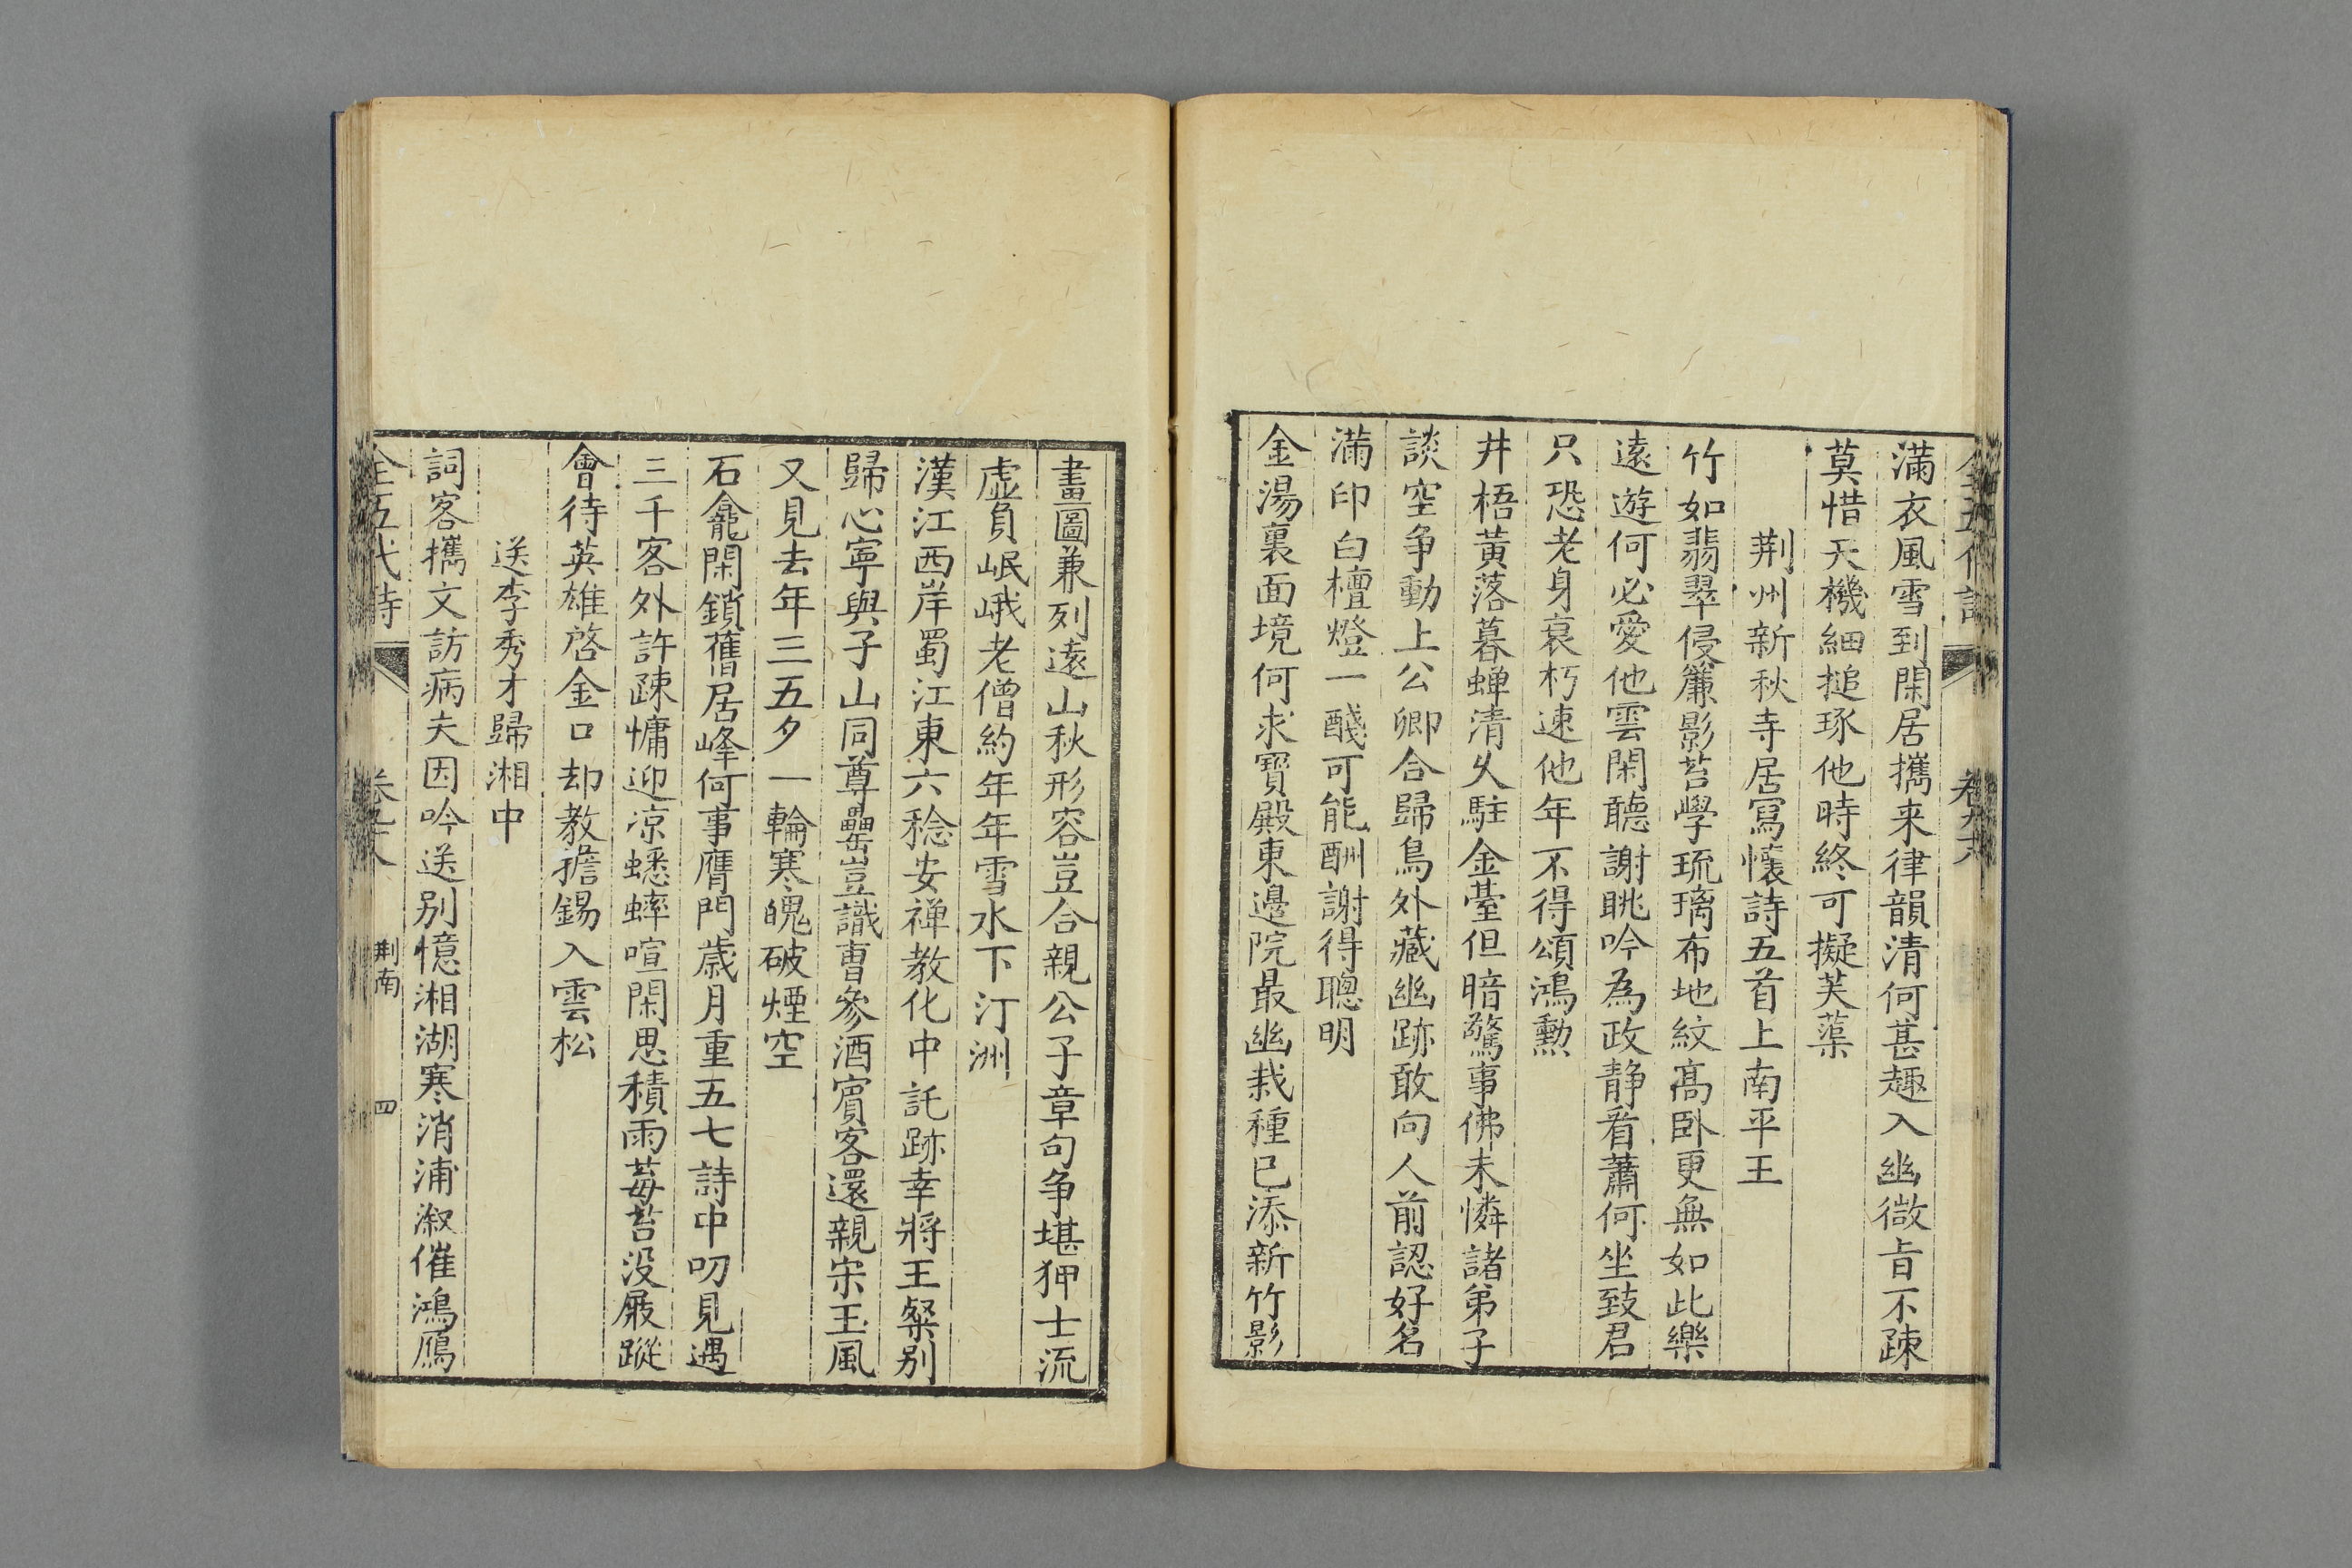 滿衣風雪到閑居攜来律韻清何甚趣入幽微旨不踈
莫惜天機細搥琢他時終可擬芙蕖
荆州新秋寺居寫懷詩五首上南平王
竹如翡翠侵簾影苔學琉璃布地紋髙卧更無如此樂
遠遊何必愛他雲閑聽謝眺吟為政静看蕭何坐致君
只恐老身衰朽速他年不得頌鴻勲
井梧黃落暮蟬清乆駐金臺但暗驚事佛未憐諸弟子
談空争動上公卿合歸鳥外藏幽跡敢向人前認好名
滿印白檀燈一醆可能酬謝得聰明
金湯裏面境何求寳殿東邊院最幽栽種已添新竹影
畫圖兼列遠山秋形容豈合親公子章句争堪狎士流
虛負岷峨老僧約年年雪水下汀洲
漢江西岸蜀江東六稔安禅教化中託跡幸將王粲别
歸心寧與子山同尊罍豈識曹參酒賓客還親宋玉風
又見去年三五夕一輪寒魄破煙空
石龕閑鎖舊居峰何事膺門歲月重五七詩中叨見遇
三千客外許踈慵迎凉蟋蟀喧閑思積雨莓苔没屐蹤
會待英雄啓金口却教擔錫入雲松
送李秀才歸湘中
詞客攜文訪病夫因吟送别憶湘湖寒消浦溆催鴻鴈
全五代詩
荆南
四